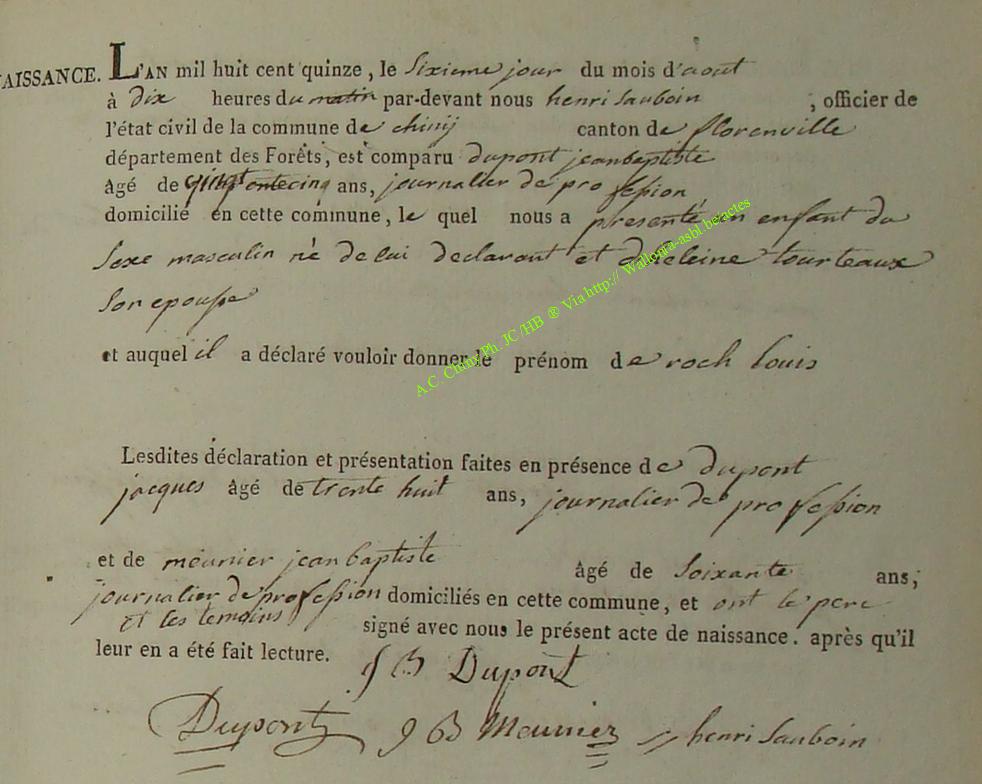 AISSANCE. L'AN mil huit cent quinze, le sixieme jour du mois d'aout
à dix heures du matin par-devant nous henri sauboin, officier de
l'état civil de la commune de chinij canton de florenville
département des Forêts, est comparu dupont jean baptiste
âgé de ans, journalier de profession
domicilié en cette commune, le quel nous a presenté un enfant du
sexe masculin né de lui declarant et tourteaux
son epouse
et auquel il a déclaré vouloir donner le prénom de roch louis
Lesdites déclaration et présentation faites en présence de dupont
jacques âgé de trente huit ans, journalier de profession
et de meunier jean baptiste âgé de soixante ans,
journalier de profession domiciliés en cette commune, et ont le pere
et les temoins signé avec nous le présent acte de naissance. après qu'il
leur en a été fait lecture.
J B Dupont
Dupont J B Meunier henri sauboin
A.C. Chiny Ph. JC/HB ® Via http:// Wallonia-asbl.be/actes